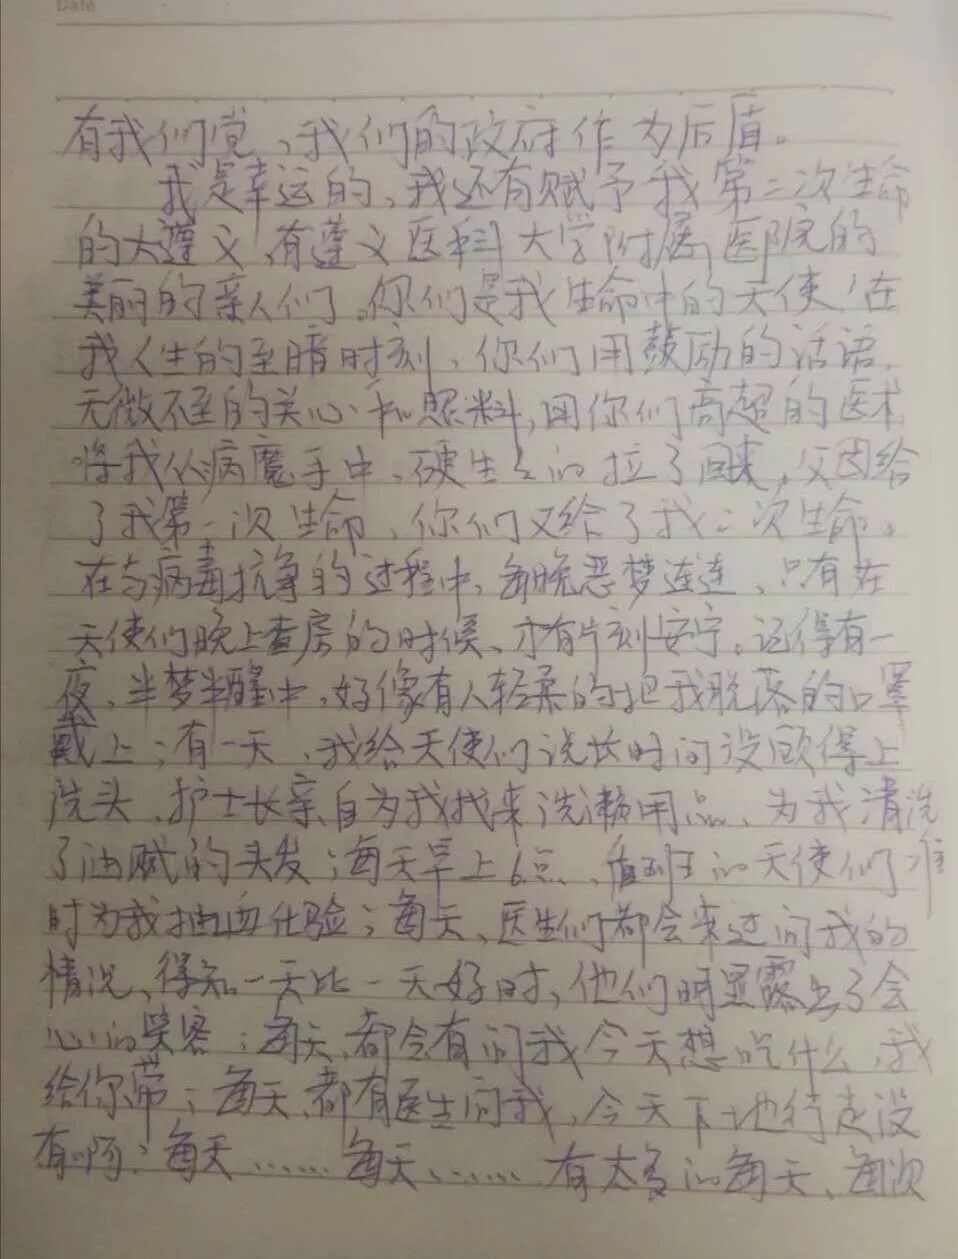 Date
有我们党、我们的政府作为后盾。
我是幸运的、我还有赋予我第二次生命
的大遵义、有遵义医科大学附属医院的
美丽的亲人们。你们是我生命中的天使！在
我人生的至暗时刻、你们用鼓励的话语、
无微不至的关心和照料，用你们高超的医术
将我从病魔手中、硬生生的拉了回来，父母给
了我第一次生命、你们又给了我二次生命。
在与病毒抗争的过程中、每晚恶梦连连、只有在
天使们晚上查房的时候、才有片刻安宁。记得有一
夜、半梦半醒中、好像有人轻柔的把我脱落的口罩
戴上；有一天、我给天使们说长时间没顾得上
洗头、护士长亲自为我找来洗漱用品、为我清洗
了油腻的头发；每天早上6点、值班的天使们准
时为我抽血化验；每天、医生们都会来过问我的
情况、得知一天比一天好时，他们明显露出了会
心的笑容；每天、都会有问我今天想吃什么、我
给你带；每天、都有医生问我、今天下地行走没
有啊；每天……每天……有太多的每天、每次